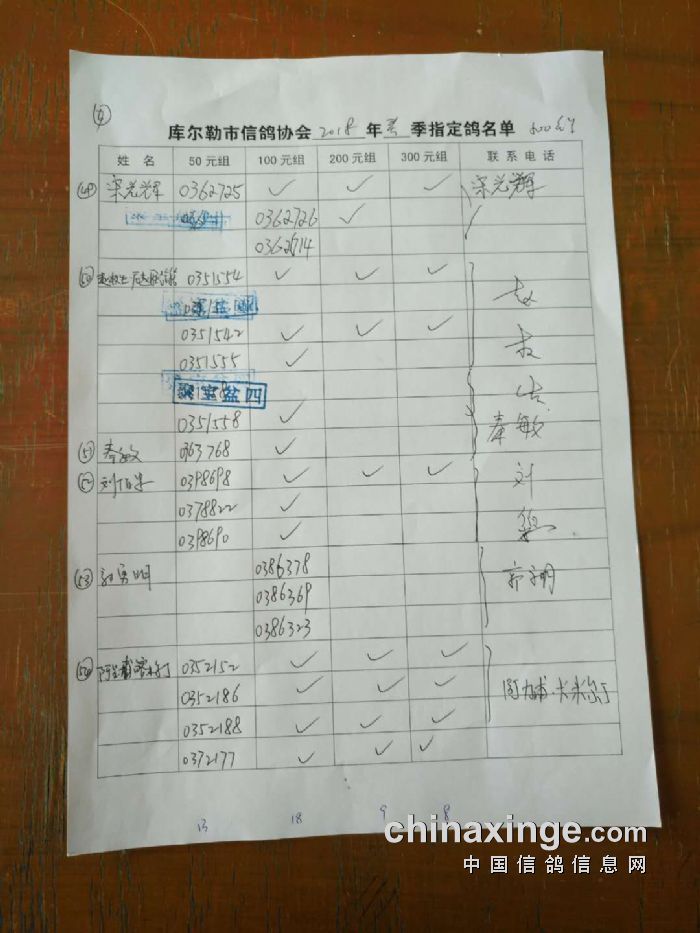 ④
库尔勒市信鸽协会 2018 年 季指定鸽名单
姓名 50元组 100元组 200元组 300元组 联系电话
㊾ 宋光辉 0362725 ✓ ✓ ✓ 宋光辉
0362726 ✓
㊿ 0351554 ✓ ✓ ✓ 赵
0351542 ✓ ✓ ✓
0351555 ✓
聚宝盆四
0351558 ✓
51 秦敏 0363768 ✓ 秦敏
52 刘 0398698 ✓ ✓ ✓ 刘
0378822 ✓
0398690 ✓
53 0386378
0386369
0386323
54 0352152 ✓ ✓ ✓
0352186 ✓ ✓ ✓
0352188 ✓ ✓ ✓
0372177 ✓ ✓ ✓
13 18 9 8
chinaxinge.com
中国信鸽信息网